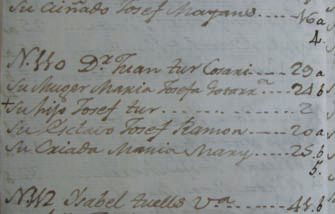 Su cuñado Josef Mayans.....16a
4.
N.110 Dn. Juan tur Cosari....29a
Su Muger Maria Josefa ....24b
+ Su hijo Josef tur........2
Su Esclavo Josef Ramon....20a
Su Criada Maria Mary.....25.b
5.
N.112 Isabel tuells Va.....45.b